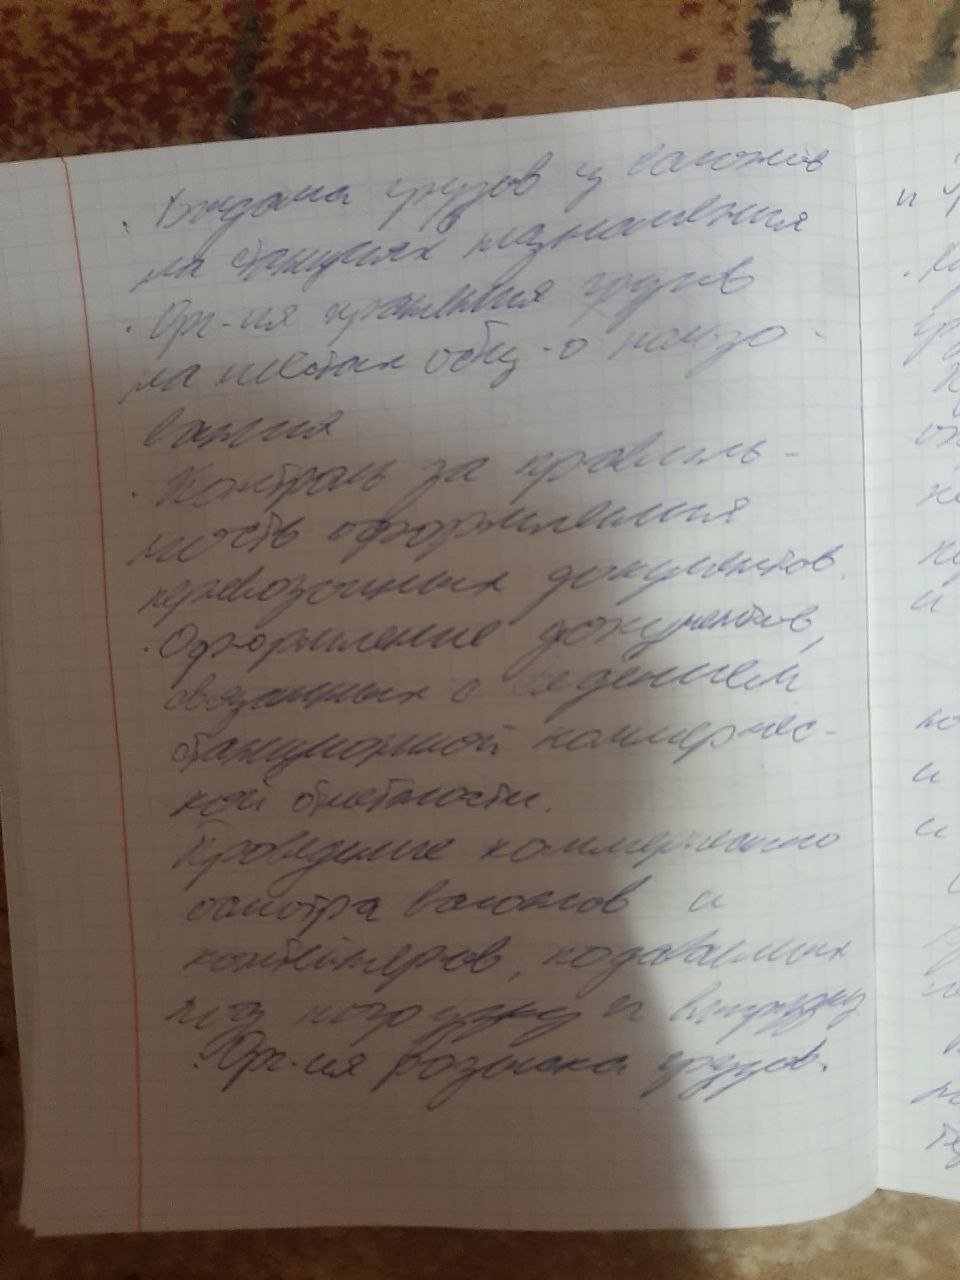 · Выдача грузов из вагонов
на станциях назначения
· Орг-ия хранения грузов
на местах общ-о пользо-
вания
· Контроль за правиль-
ность оформления
перевозочных документов.
· Оформление документов,
связанных с ведением
станционной коммерчес-
кой отчетности.
Проведение коммерческого
осмотра вагонов и
контейнеров, подаваемых
под погрузку и выгрузку
· Орг-ия розыска грузов.